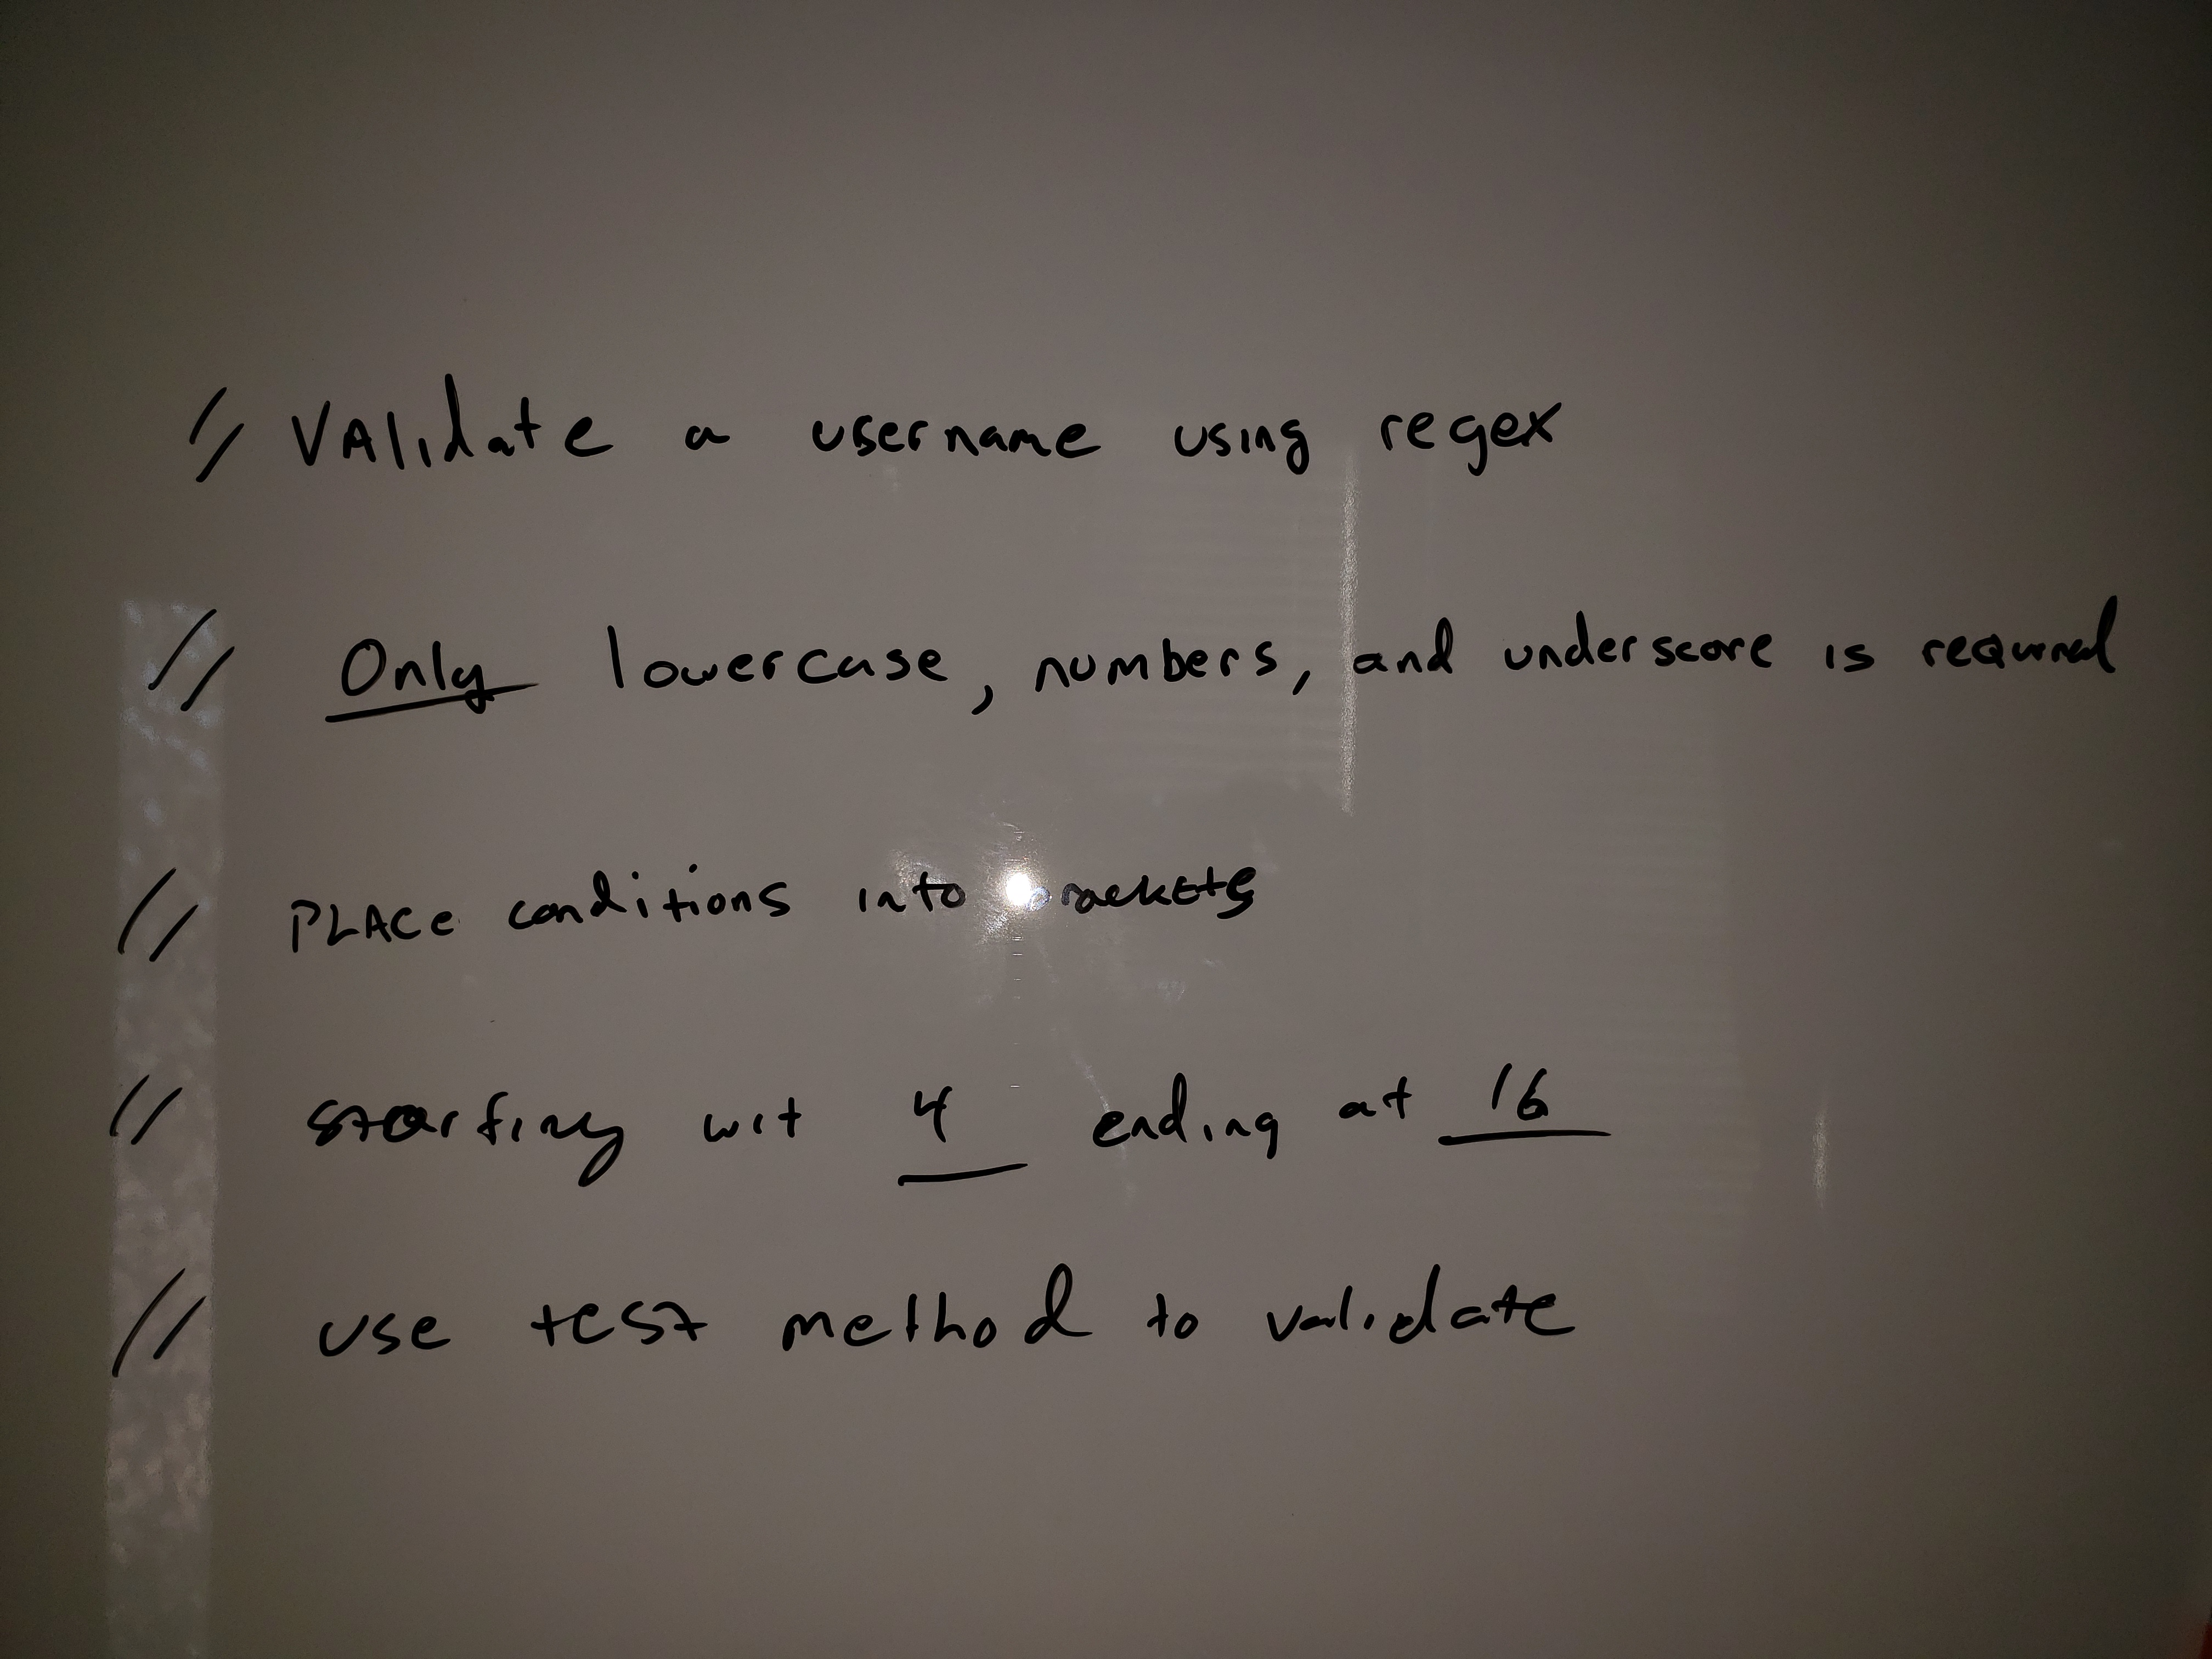 // VAlidate a username using regex
// Only lowercase, numbers, and underscore is required
// PLACe conditions into brackets
// starting wit 4 ending at 16
// use test method to validate